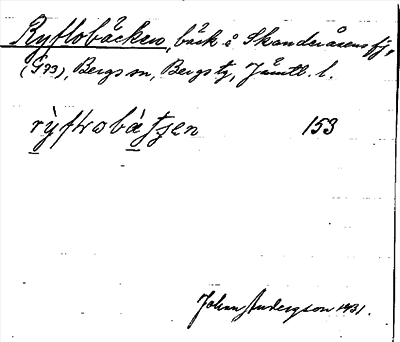 Ryflobäcken, bäck å Skanderåsens fj.,
(G 33), Bergs sn, Bergs tg, Jämtl. l.
153
Johan Andersson 1931.